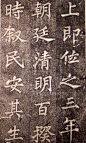 上即位之三年
朝廷清明百揆
時敘民安其生